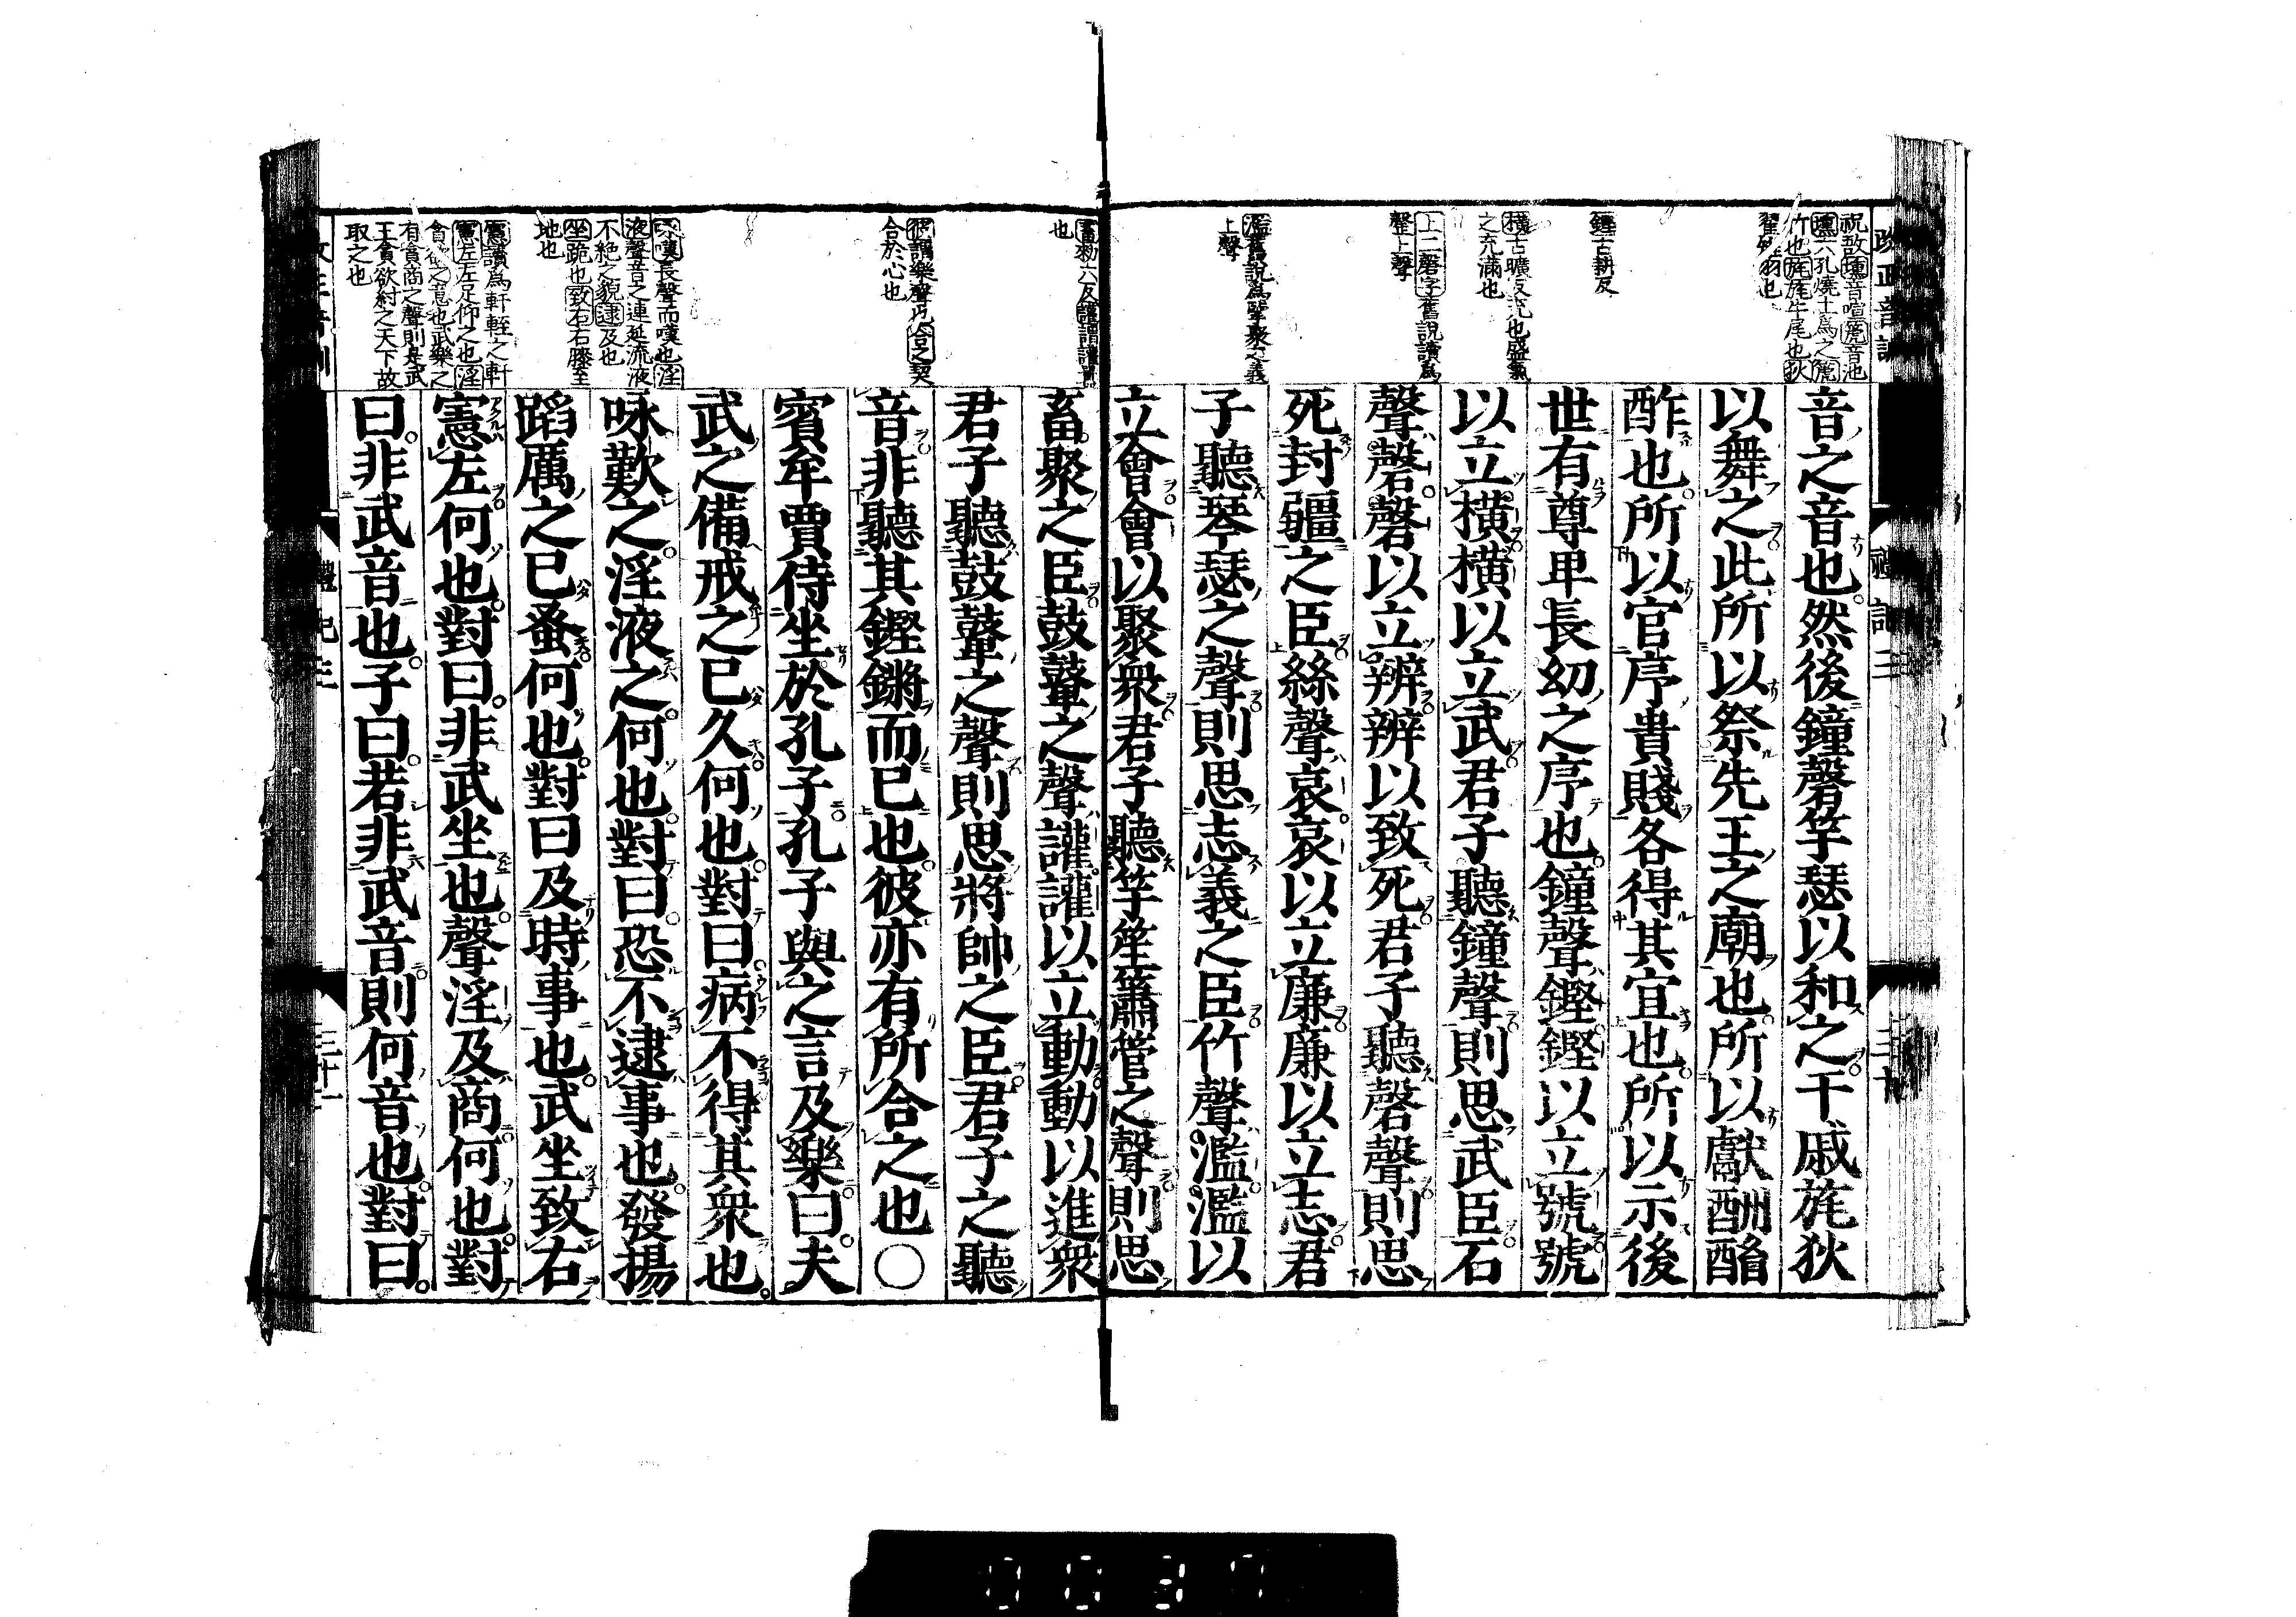 改正音訓
禮記三
三十
祝敔壎音喧箎音池
壎六孔燒土為之箎
竹也旄旄牛尾也狄
翟雉羽也
鏗古耕反
橫古曠反充也盛氣
之充滿也
上二磬字舊說讀爲
罄上聲
濫舊說爲擥聚之義
上聲
音之音也然後鐘磬竽瑟以和之干戚旄狄
以舞之此所以祭先王之廟也所以獻酬酳
酢也所以官序貴賤各得其宜也所以示後
世有尊卑長幼之序也鐘聲鏗鏗以立號號
以立橫橫以立武君子聽鐘聲則思武臣石
聲磬磬以立辨辨以致死君子聽磬聲則思
死封疆之臣絲聲哀哀以立廉廉以立志君
子聽琴瑟之聲則思志義之臣竹聲濫濫以
立會會以聚衆君子聽竽笙簫管之聲則思
畜勑六反讙謂諠囂
也
彼謂樂聲也合之契
合於心也
咏嘆長聲而嘆也淫
液聲音之連延流液
不絕之貌逮及也
坐跪也致右右膝至
地也
憲讀爲軒輊之軒
憲左左足仰之也淫
貪欲之意也武樂之
有貪商之聲則是武
王貪欲紂之天下故
取之也
畜聚之臣鼓鼙之聲讙讙以立動動以進衆
君子聽鼓鼙之聲則思將帥之臣君子之聽
音非聽其鏗鏘而已也彼亦有所合之也○
賓牟賈侍坐於孔子孔子與之言及樂曰夫
武之備戒之已久何也對曰病不得其衆也
咏歎之淫液之何也對曰恐不逮事也發揚
蹈厲之已蚤何也對曰及時事也武坐致右
憲左何也對曰非武坐也聲淫及商何也對
曰非武音也子曰若非武音則何音也對曰
三十一